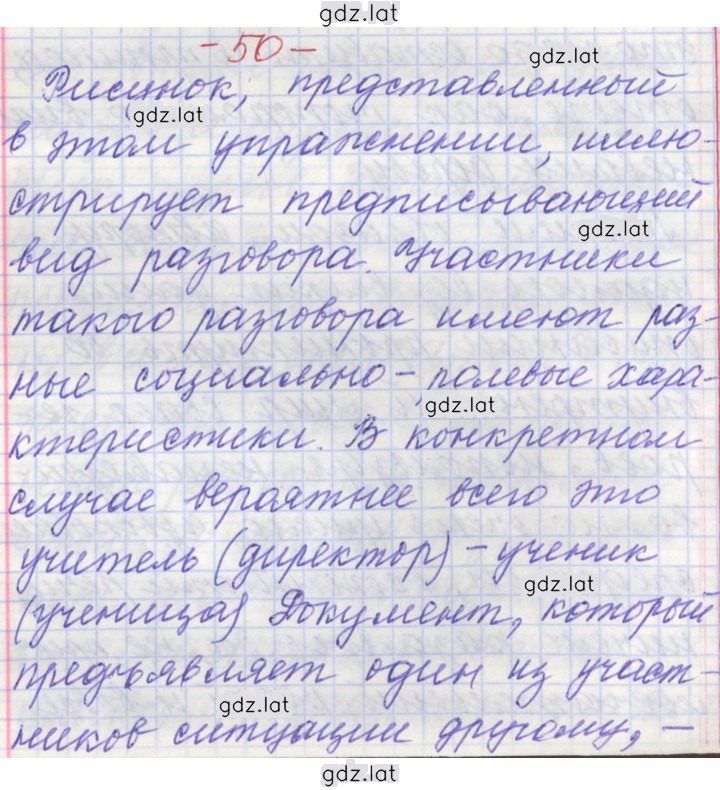 gdz.lat
- 50 -
gdz.lat
Рисунок, представленный
gdz.lat
в этом упражнении, иллю-
стрирует предписывающий
gdz.lat
вид разговора. Участники
такого разговора имеют раз-
ные социально - ролевые хара-
gdz.lat
ктеристики. В конкретном
случае вероятнее всего это
учитель (директор) - ученик
gdz.lat
(ученица) Документ, который
предъявляет один из участ-
gdz.lat
ников ситуации другому, -
gdz.lat